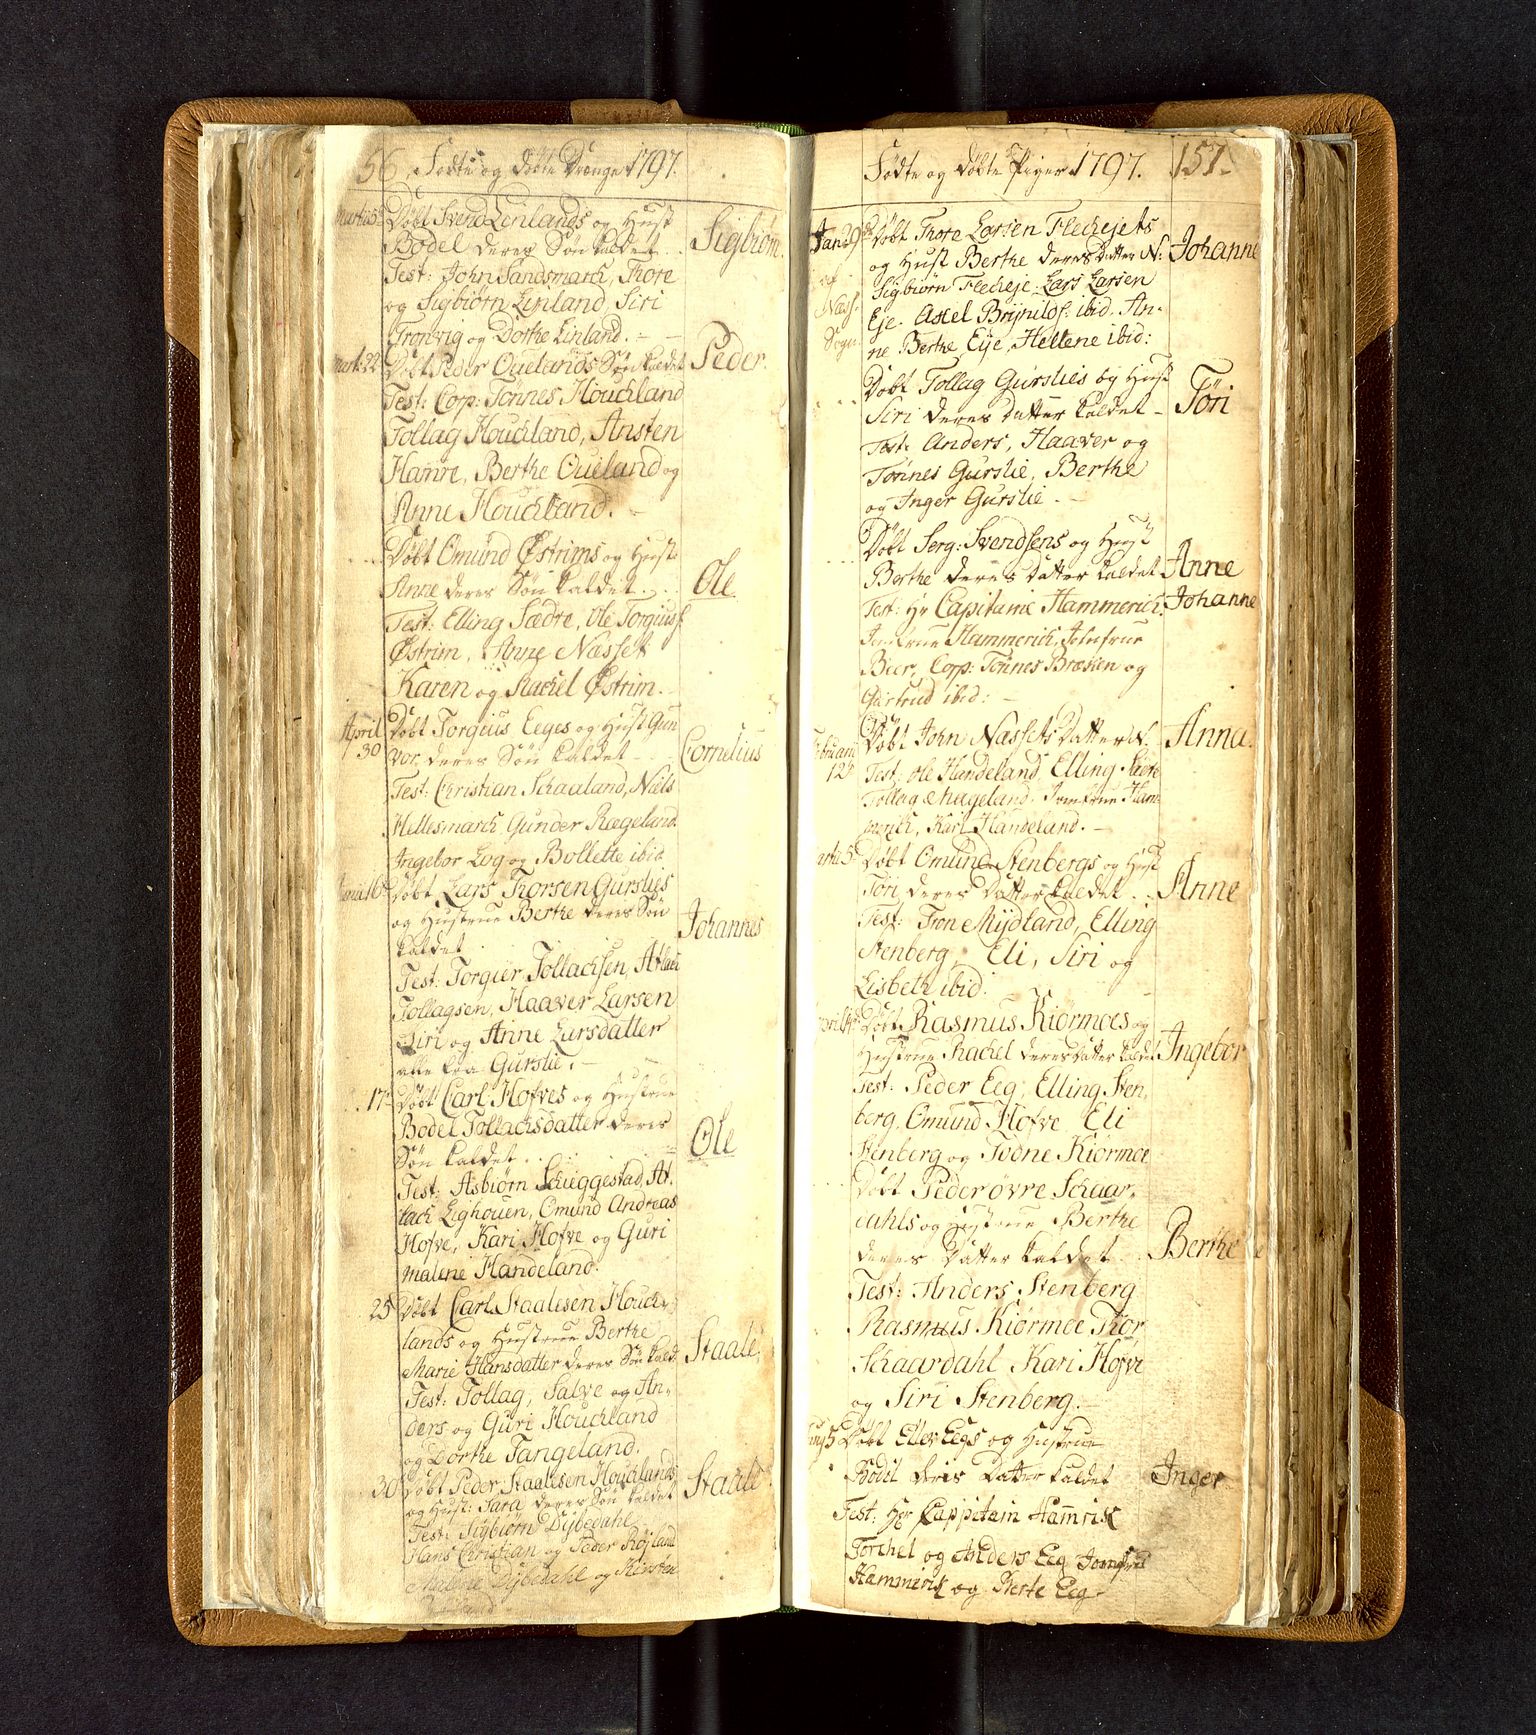 56. Fødte og Døbte Drenge 1797.
Martii 5te Døbt Svend Linlands og Hust
Bodel deres Søn kaldet Sigbiørn
Test: John Sandsmarch, Thore
og Sigbiørn Linland, Siri
Tronvig og Dorthe Linland.
Mart: 22 Døbt Peder Quelands Søn kaldet Peder.
Test: Corp: Tønnes Houchland
Tollag Houchland, Ansten
Hamre, Berthe Queland og
Anne Houchland.
Døbt Omund Østrims og Hust:
Anne deres Søn kaldet Ole.
Test: Elling Sædre, Ole Torgiusf
Østrim, Anne Næsset
Karen og Rachel Østrim.
April 30 Døbt Torgius Eeges og Hust Gun
vor deres Søn kaldet Cornelius
Test: Christian Schaaland, Niels
Hellesmarch, Gunder Rægeland
Ingebor Log og Bollette ibid
16 Døbt Lars Thorsen Gurslies
og Hustrue Berthe deres Søn Johannes
kaldet
Test: Torgier Tollachsen, Atlach
Tollagsen, Haaver Larsen
Siri og Anne Larsdatter
alle fra Gurslie.
17 Døbt Carl Hofves og Hustrue
Bodel Tollachsdatter deres
Søn kaldet Ole
Test: Asbiørn Schieggestad, At-
lach Lighouen, Omund Andreas
Hofve, Kari Hofve og Guri
Malene Handeland.
25 Døbt Carl Staalesen Houch-
lands og Hustrue Berthe
Marie Hansdatter deres Søn kald. Staale.
Test: Tollag, Salve og An-
ders og Guri Houchland
og Dorthe Tangeland.
30 Døbt Peder Staalesen Houchlands
og Hust: Sara deres Søn kaldet Staale
Test: Sigbiørn Dybedahl
Hans Christian og Peder Røjland
Malene Dybedahl og Kirsten
Fødte og Døbte Piger 1797. 157.
Jan: 29 Døbt Thore Larsen Flechejets
og Hust Berthe deres Datter N: Johanne
af Næss. Sogn: Sigbiørn Flecheje: Lars Larsen
Eje. Axel Brynilds: ibid. An-
ne Berthe Eije, Hellene ibid:
Døbt Tollag Gurslies og Hust
Siri deres Datter kaldet Tøri
Test: Anders, Haaver og
Tønnes Gurslie, Berthe
og Inger Gurslie.
Døbt Serg: Svendsens og Hust
Berthe deres Datter kaldet Anne
Test: Hr Capitaine Hammerich, Johanne
Jomfrue Hammerich, Jomfrue
Beer, Corp: Tønnes Bræsien og
Giertrud ibid:
Februarii 12 Døbt John Næssets Datter N. Anna.
Test: Ole Handeland, Elling
Tollag Mageland. Jomfrue Ham
merich, Kari Handeland.
Martii 5 Døbt Omund Stenbergs og Hust
Tøri deres Datter kaldet Anne
Test: Tron Mydland, Elling
Stenberg, Eli, Siri og
Lisbeth ibid.
April Døbt Rasmus Kiørmoes og
Hustrue Rachel deres Datter kaldet Ingebor
Test: Peder Eeg, Elling Sten-
berg, Omund Hofve Eli
Stenberg og Todne Kiørmoe
Døbt Peder øvre Schaar-
dahls og Hustrue Berthe
deres Datter kaldet Berthe
Test: Anders Stenberg
Rasmus Kiørmoe Thor
Schaardahl Kari Hofve
og Siri Stenberg.
5 Døbt Eller Eegs og Hustrue
Bodil deris Datter kaldet Inger
Test: Hr Cappitain Hamrik
Torchel og Anders Eeg Jomfrue
Hammerik og Berte Eeg